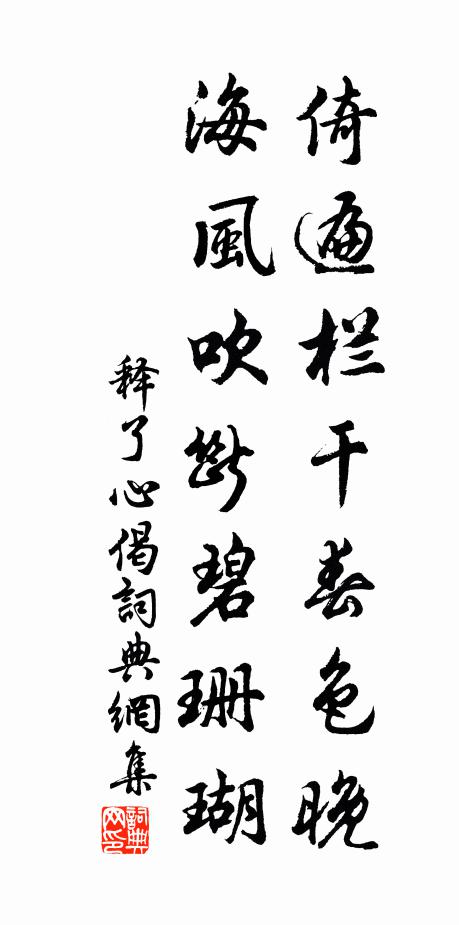 倚遍栏干春色晚
海風吹斷碧珊瑚
释了心偈詞典網集
詞典
网印